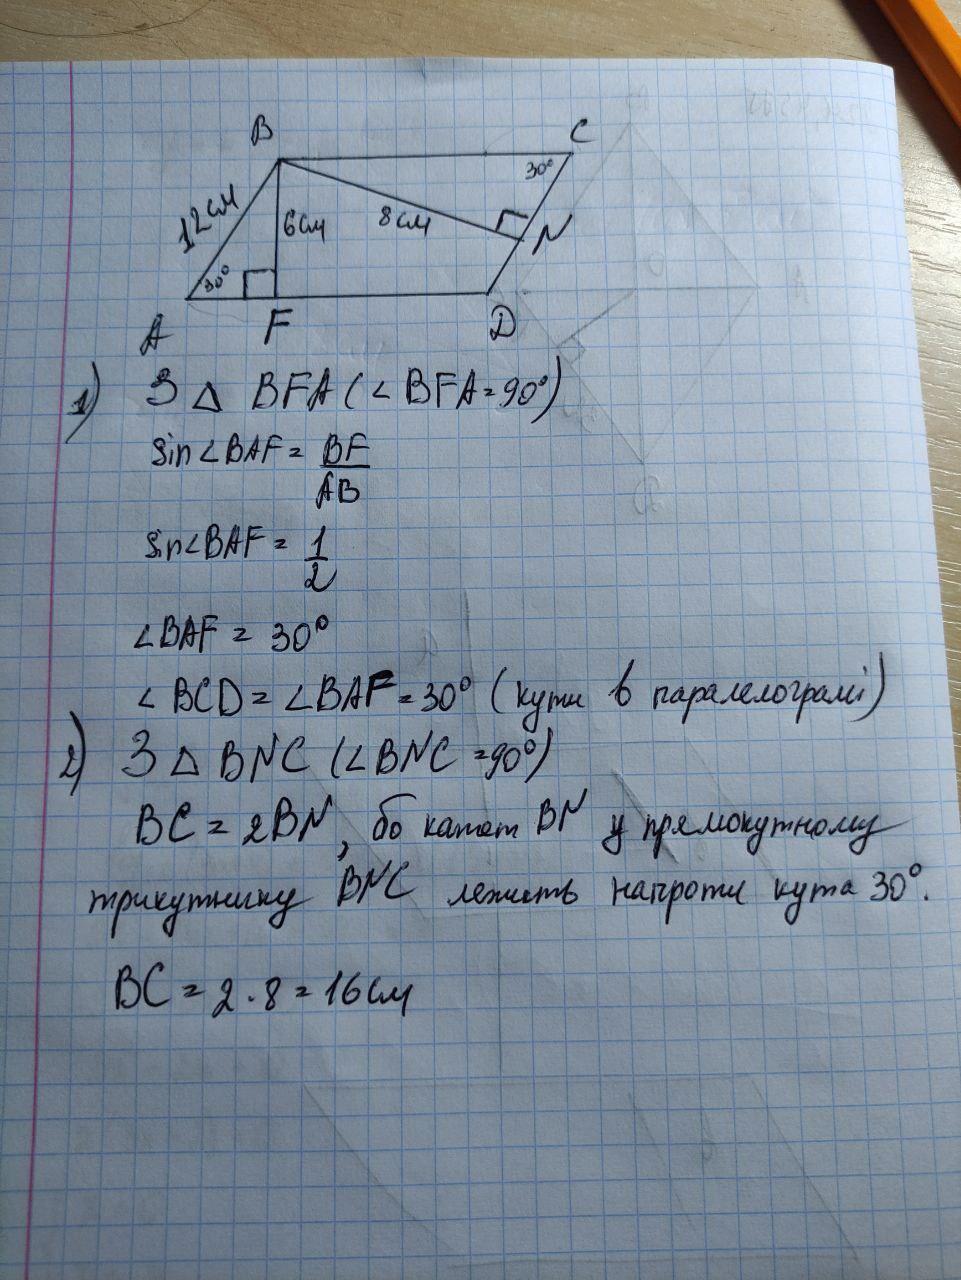 B
C
12 см
30°
6 см
8 см
N
30°
A
F
D
1) З △ BFA (∠ BFA = 90°)
sin∠BAF = BF/AB
sin∠BAF = 1/2
∠BAF = 30°
∠ BCD = ∠ BAF = 30° (кути в паралелограмі)
2) З △ BNC (∠ BNC = 90°)
BC = 2BN, бо катет BN у прямокутному
трикутнику BNC лежить напроти кута 30°.
BC = 2 · 8 = 16 см